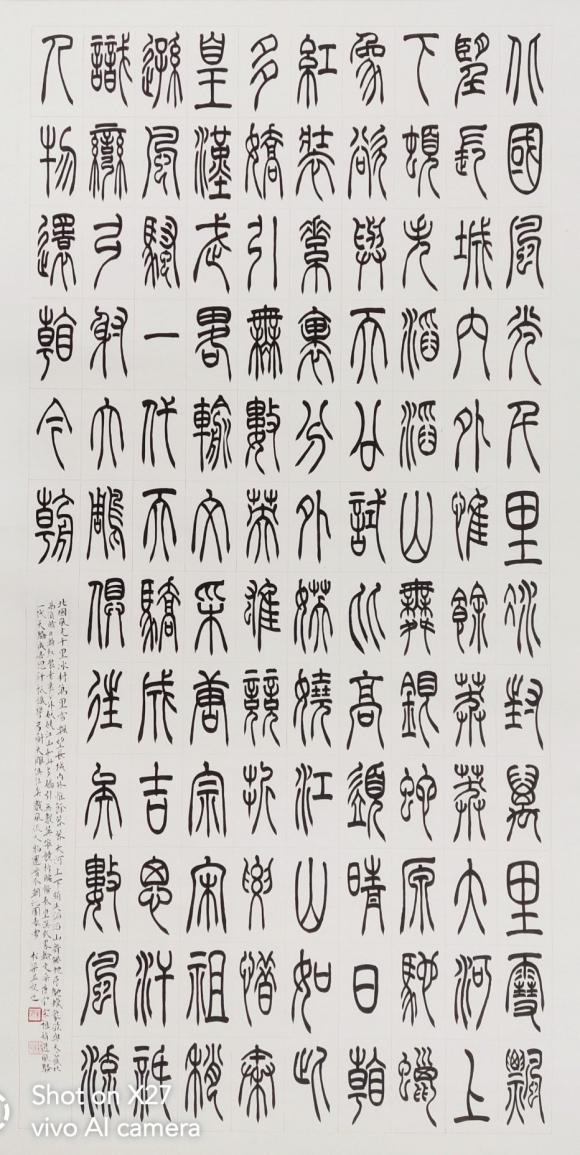 北國風光千里冰封萬里雪飄
望長城內外惟餘莽莽大河上
下頓失滔滔山舞銀蛇原馳蠟
象欲與天公試比高須晴日看
紅裝素裹分外妖嬈江山如此
多嬌引無數英雄競折腰惜秦
皇漢武略輸文采唐宗宋祖稍
遜風騷一代天驕成吉思汗祗
識彎弓射大雕俱往矣數風流
人物還看今朝
北國風光千里冰封萬里雪飄望長城內外惟餘莽莽大河上下頓失滔滔山舞銀蛇原馳蠟象欲與天公試比
高須晴日看紅裝素裹分外妖嬈江山如此多嬌引無數英雄競折腰惜秦皇漢武略輸文采唐宗宋祖稍遜風騷
一代天驕成吉思汗祗識彎弓射大雕俱往矣數風流人物還看今朝沁園春雪
Shot on X27
vivo AI camera